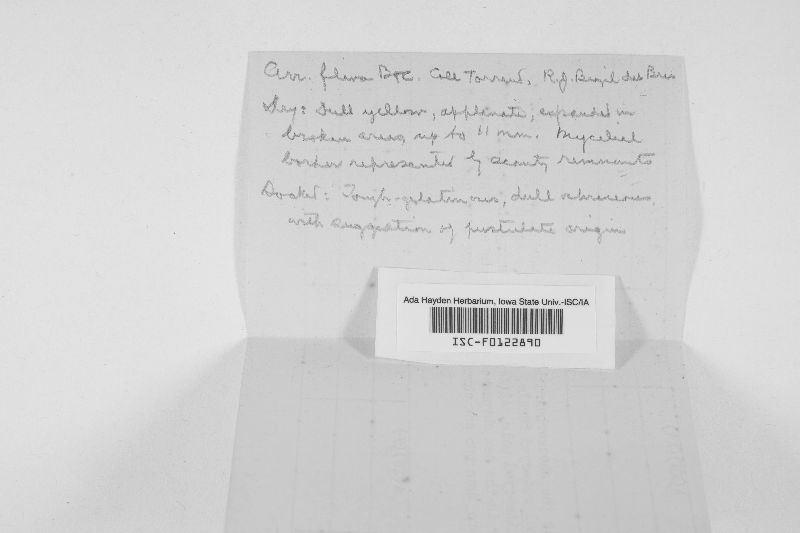 Arr. flava Bre. Coll Torrend, R.J. Brazil det Bres
Dry: Dull yellow, applanate, expanded in
broken areas, up to 11 mm. Mycelial
border represented by scanty remnants
Soaked: Tough-gelatinous, dull ochraceous,
with suggestion of pustulate origin
Ada Hayden Herbarium, Iowa State Univ.-ISC/IA
ISC-F0122890